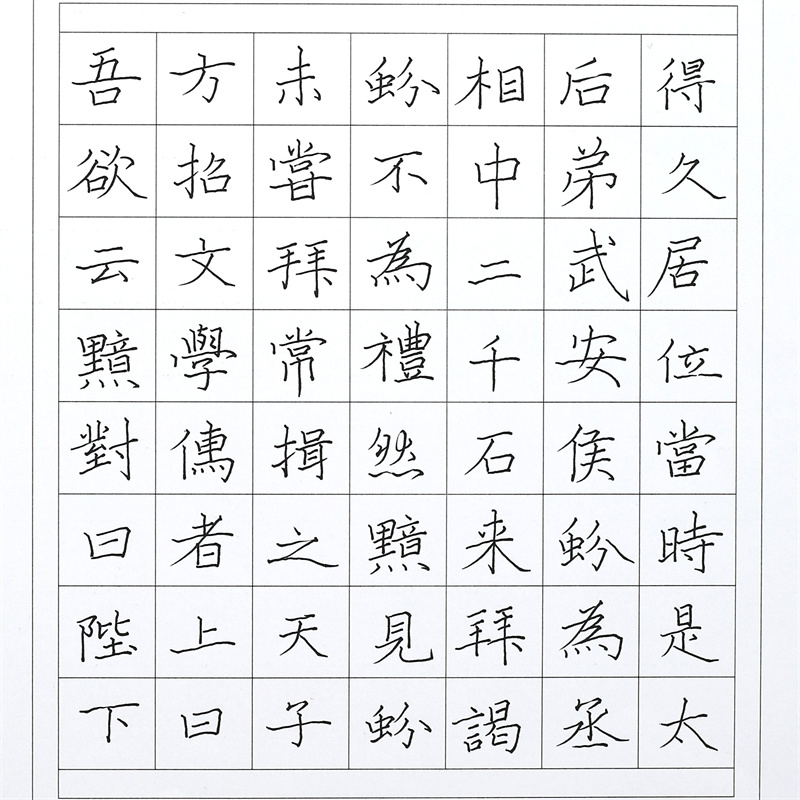 得久居位當時是太
后弟武安侯蚡為丞
相中二千石来拜謁
蚡不為禮然黯見蚡
未嘗拜常揖之天子
方招文學儒者上曰
吾欲云黯對曰陛下